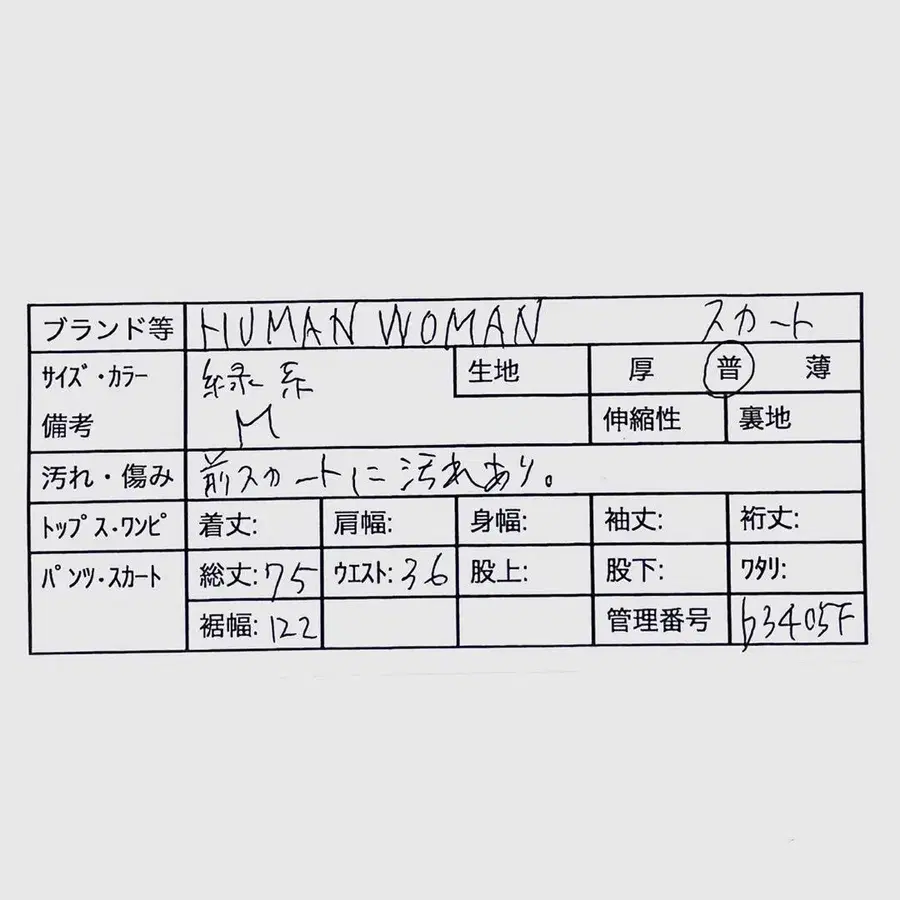 ブランド等 HUMAN WOMAN スカート
サイズ・カラー 緑系 生地 厚 普 薄
備考 M 伸縮性 裏地
汚れ・傷み 前スカートに汚れあり。
トップス・ワンピ 着丈: 肩幅: 身幅: 袖丈: 裄丈:
パンツ・スカート 総丈:75 ウエスト:36 股上: 股下: ワタリ:
裾幅:122 管理番号 b3405F